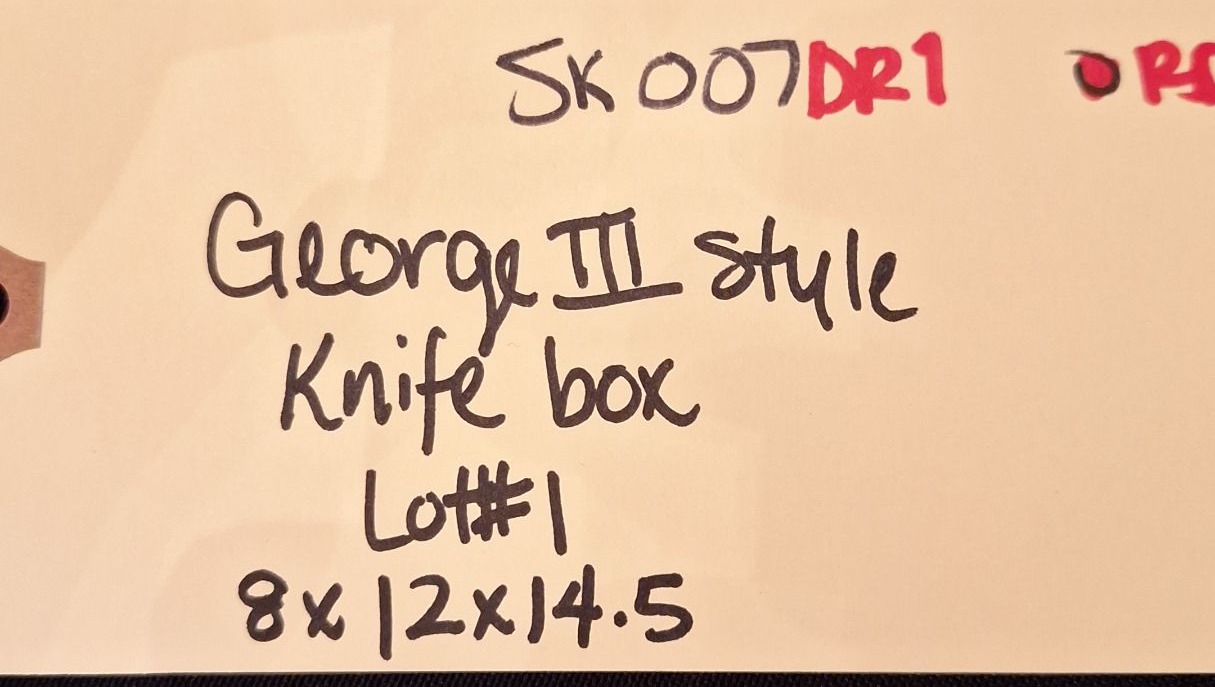 SK007DR1
George III style
Knife box
Lot#1
8x12x14.5